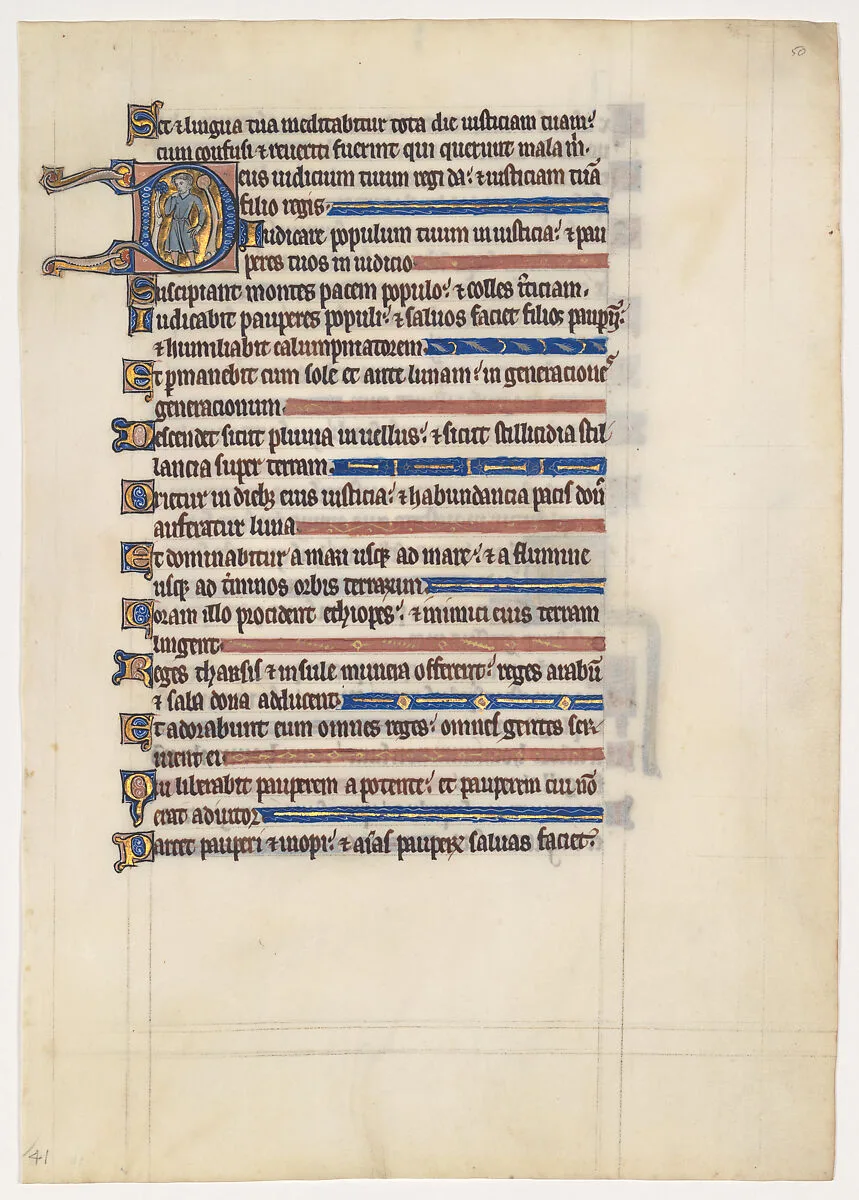 50
Set & lingua tua meditabitur tota die iusticiam tuam:
cum confusi & reueriti fuerint qui querunt mala m.
Deus iudicium tuum regi da: & iusticiam tuã
filio regis.
Iudicare populum tuum in iusticia: & pau
peres tuos in iudicio.
Suscipiant montes pacem populo: & colles iticiam.
Iudicabit pauperes populi: & saluos faciet filios
& humiliabit calumpniatorem.
Et pmanebit cum sole et ante lunam: in generacione
generacionum.
Descendet sicut pluuia in uellus: & sicut stillicidia stil
lancia super terram.
Orietur in dieb; eius iusticia: & habundancia pacis don
auferatur luna.
Et dominabitur a mari usq; ad mare: & a flumine
usq; ad tminos orbis terrarum.
Coram illo procident ethiopes: & inimici eius terram
lingent.
Reges tharsis & insule munera offerent: reges arabũ
& saba dona adducent.
Et adorabunt eum omnes reges: omnes gentes ser
uient ei.
Qui liberabit pauperem a potente: et pauperem cui nõ
erat adiutor.
Parcet pauperi & inopi: & aïas pauperꝝ saluas faciet.
41